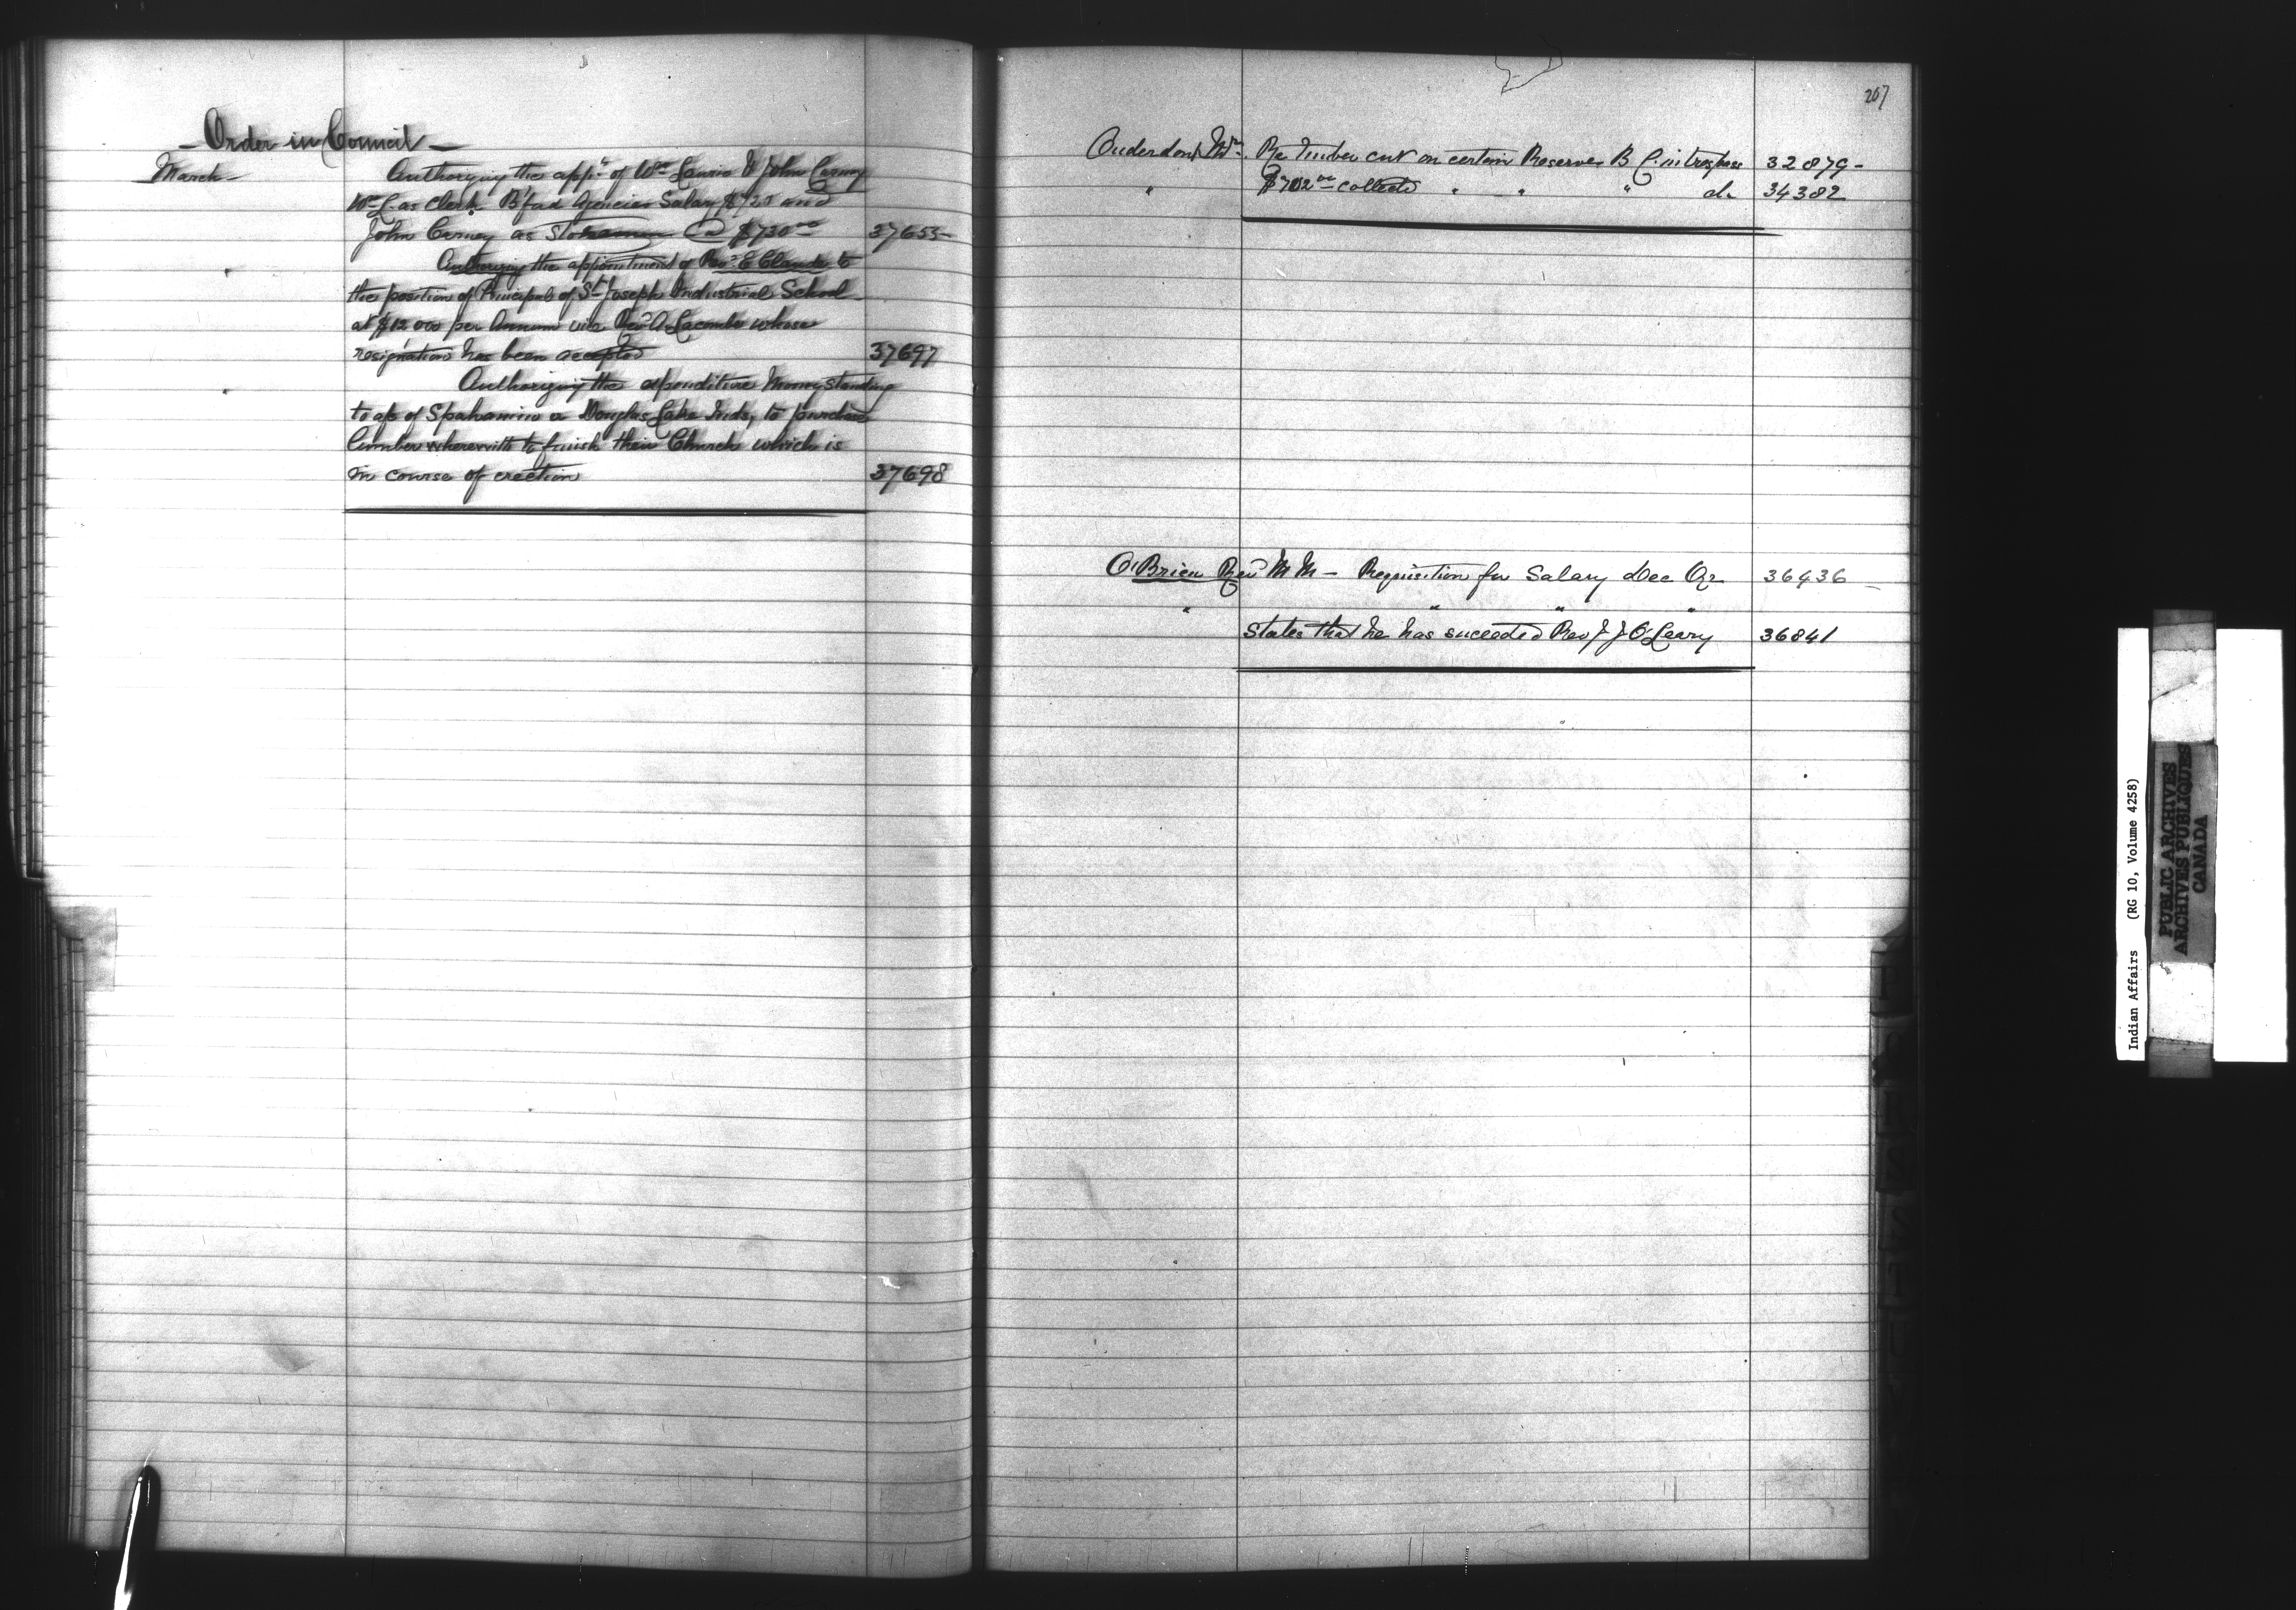 - Order in Council -
March Authorizing the app.t of Wm Laurie & John Carney
Wm L as Clerk B'ford Agencies Salary $720 and
John Carney as Storeman @ $730.00 37655
" Authorizing the appointment of Revd E Claude to
the position of Principal of St Joseph Industrial School
at $1200 per Annum vice Revd A Lacombe whose
resignation has been accepted 37697
" Authorizing the expenditure Money standing
to a/c of Spahamin or Douglas Lake Inds, to purchase
lumber wherewith to finish their Church which is
in course of erection 37698
207
Onderdonk Mr. Re Timber cut on certain Reserves B C. in trespass 32879 -
" $702.00 collected " " " do 34382
O'Brien Revd M M - Requisition for Salary Dec Qr 36436 -
" " " "
States that he has suceeded Rev J J O'Leary 36841
Indian Affairs (RG 10, Volume 4258)
PUBLIC ARCHIVES
ARCHIVES PUBLIQUES
CANADA